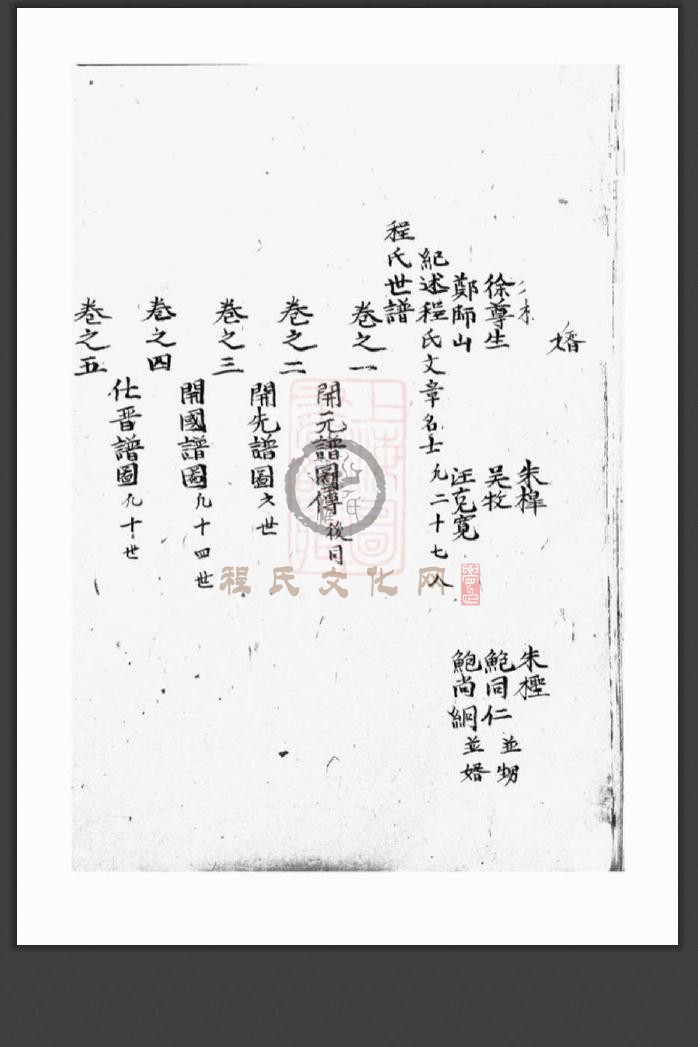 婿
朱樟 朱檉
徐尊生 吴牧 鮑同仁 並甥
鄭師山 汪克寬 鮑尚絅 並婿
紀述程氏文章名士 凡二十七人
程氏世譜
卷之一
開元譜圖傳 後同
卷之二
開先譜圖 六世
卷之三
開國譜圖 凡十四世
卷之四
仕晋譜圖 凡十世
卷之五
程氏文化网